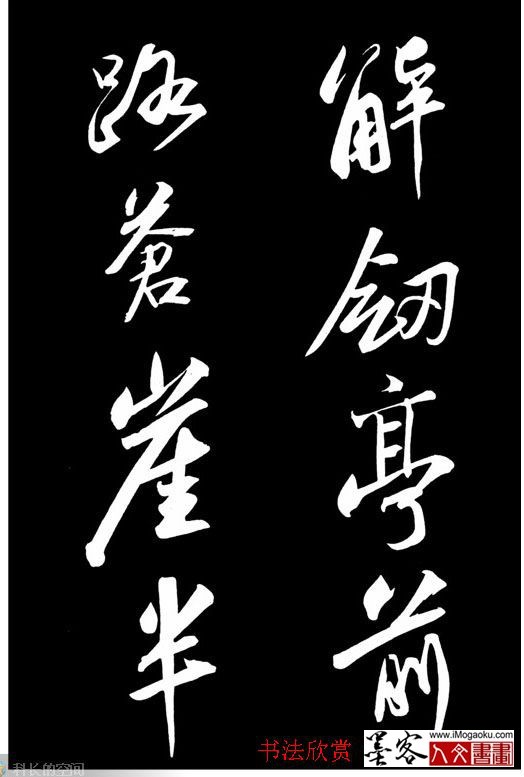 解劍亭前
路蒼崖半
书法欣赏
墨客
www.iMogaoku.com
人文書畫
科长的空间